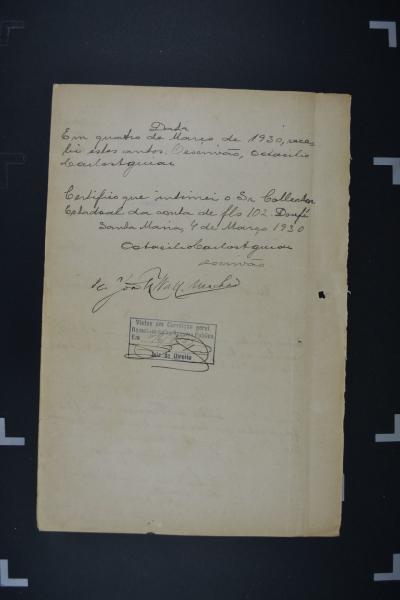 Data
Em quatro de Março de 1930, rece-
bi estes autos. O escrivão, Octacilio
Carlos Aguiar
Certifico que intimei o Sr. Collector
Estadoal da conta de fls 102. Doufé
Santa Maria, 4 de Março 1930
Octacilio Carlos Aguiar
escrivão
Vistos em Correição geral
Em
Juiz de Direito